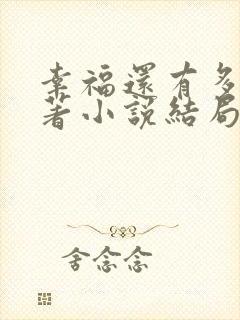 幸福還有多
著小說結局
舍念念